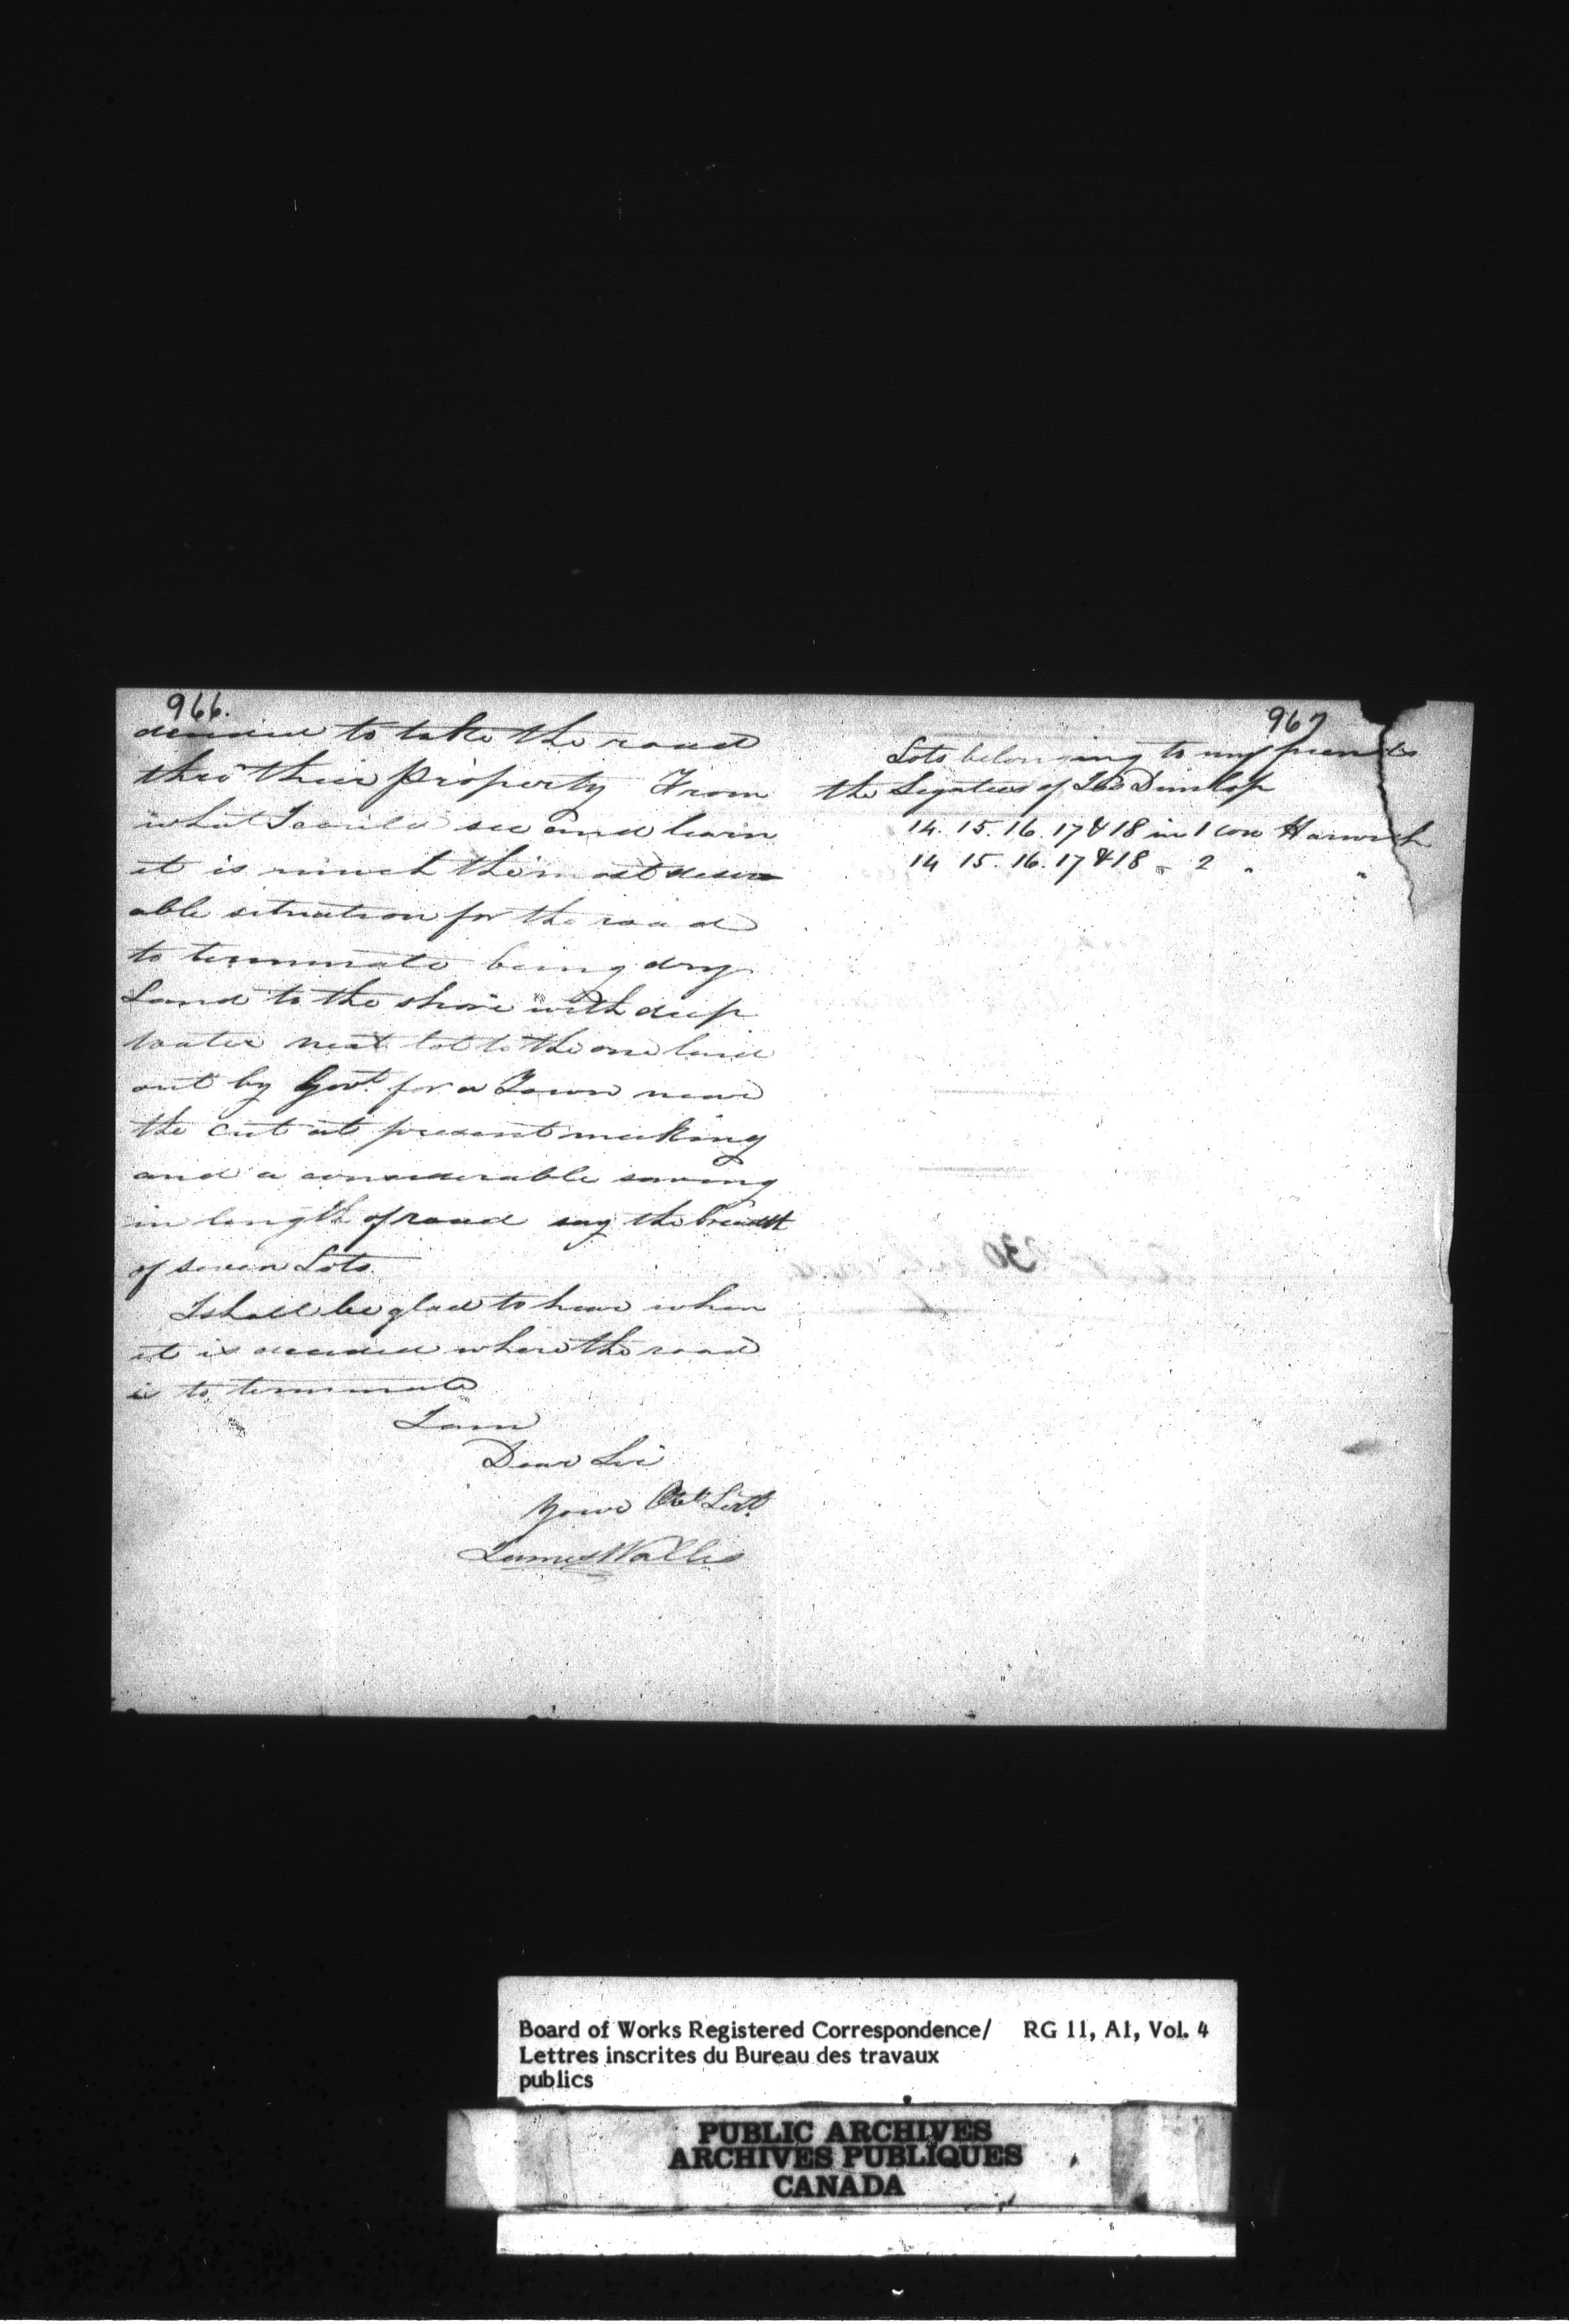 966.
decide to take the road
thro' their property From
what I could see and learn
it is much the most desir
able situation for the road
to terminate being dry
Land to the shore with deep
water next lot to the one laid
out by Govt. for a Town near
the cut at present making
and a considerable saving
in length of road say the breadth
of seven Lots.
I shall be glad to hear when
it is decided where the road
is to terminate
I am
Dear Sir
Your Obt. Sert.
James Wallis
967
Lots belonging to my friends
the Legatees of Dunlop
14. 15. 16. 17 & 18 in 1 con Harwich
14 15. 16. 17 & 18 - 2 " "
30
Board of Works Registered Correspondence/ RG 11, A1, Vol. 4
Lettres inscrites du Bureau des travaux
publics
PUBLIC ARCHIVES
ARCHIVES PUBLIQUES
CANADA